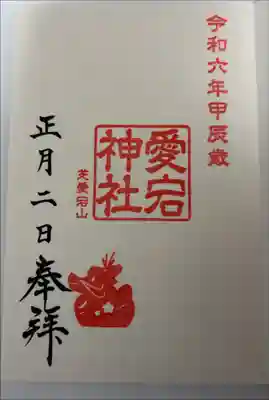 令和六年甲辰歳
愛宕
神社
芝愛宕山
正月二日奉拜